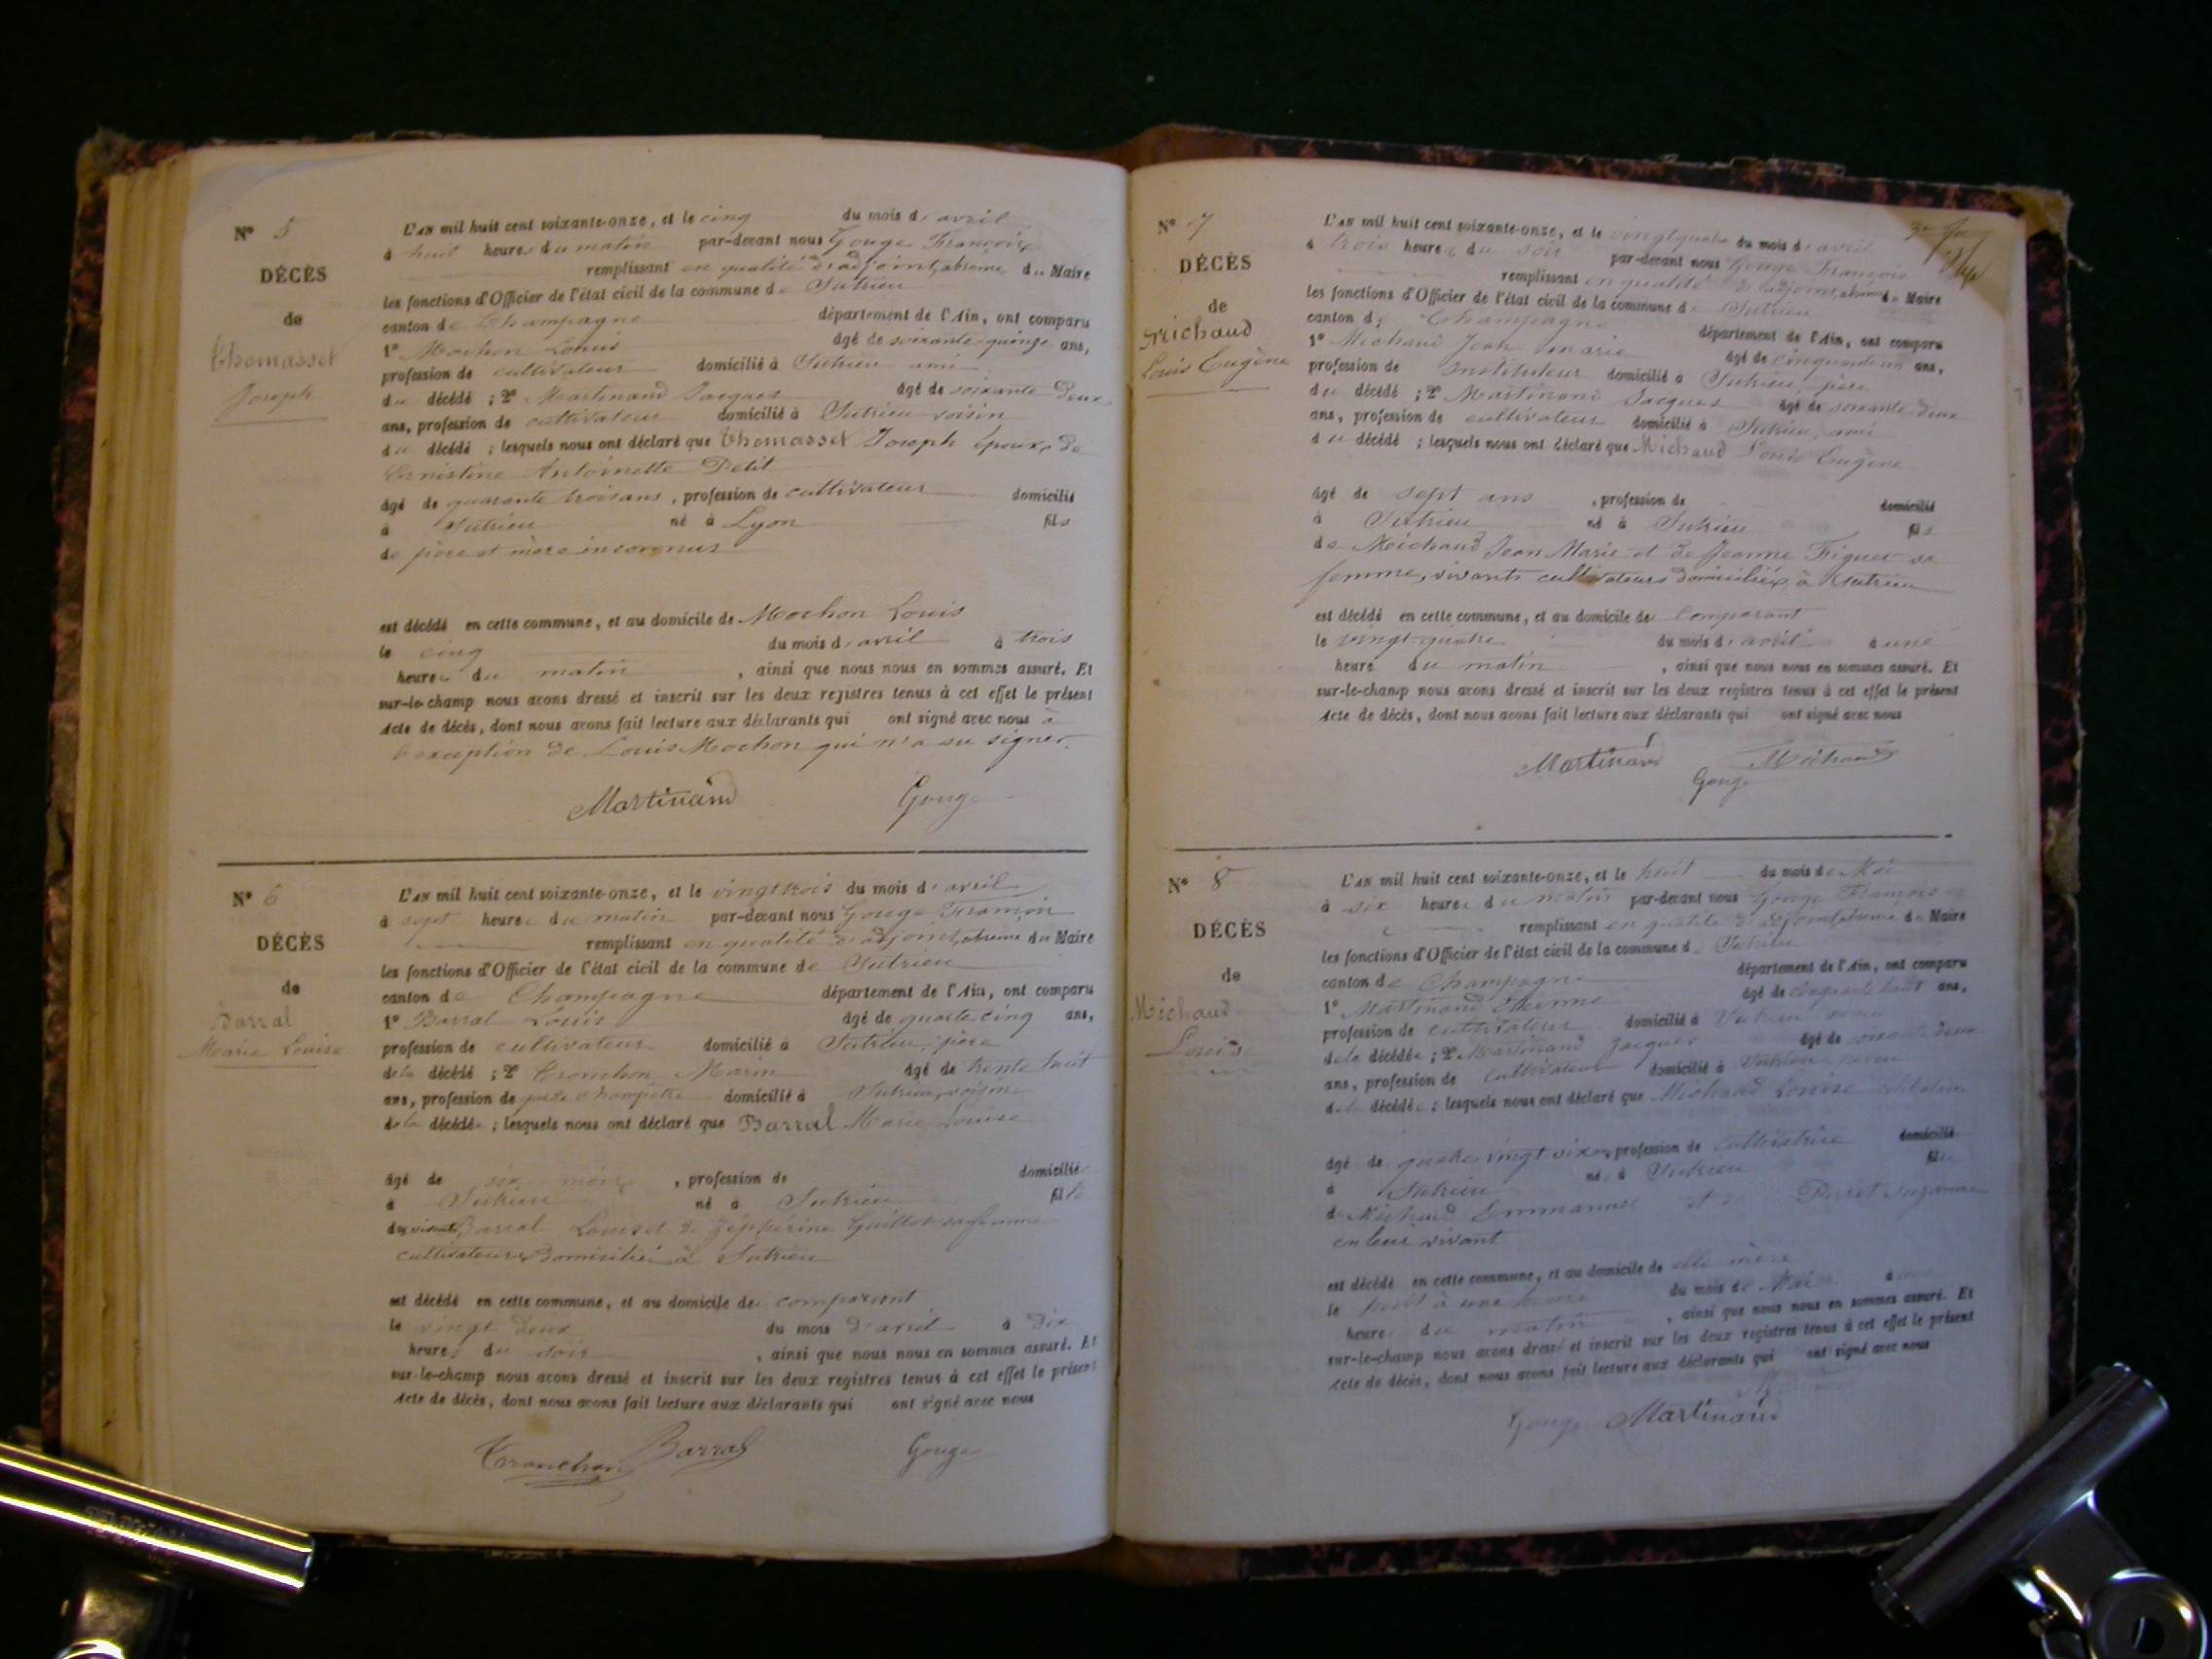 N° 5
DÉCÈS
de
Thomasset
Joseph
L'AN mil huit cent soixante-onze, et le cinq du mois d'avril
à huit heures du matin par-devant nous Gouge François
remplissant en qualité d'adjoint, absence du Maire
les fonctions d'Officier de l'état civil de la commune de Sutrieu
canton de Champagne département de l'Ain, ont comparu
1° Mochon Louis âgé de soixante-quinze ans,
profession de cultivateur domicilié à Sutrieu ami
du décédé ; 2° Martinand Jacques âgé de soixante deux
ans, profession de cultivateur domicilié à Sutrieu voisin
du décédé ; lesquels nous ont déclaré que Thomasset Joseph époux de
Ernistine Antoinette Petit
âgé de quarante trois ans, profession de cultivateur domicilié
à Sutrieu né à Lyon fils
de père et mère inconnus
est décédé en cette commune, et au domicile de Mochon Louis
le cinq du mois d'avril à trois
heures du matin, ainsi que nous nous en sommes assuré. Et
sur-le-champ nous avons dressé et inscrit sur les deux registres tenus à cet effet le présent
Acte de décès, dont nous avons fait lecture aux déclarants qui ont signé avec nous à
l'exception de Louis Mochon qui n'a su signer.
Martinand Gouge
N° 6
DÉCÈS
de
Barral
Marie Louise
L'AN mil huit cent soixante-onze, et le vingt trois du mois d'avril
à sept heures du matin par-devant nous Gouge François
remplissant en qualité d'adjoint, absence du Maire
les fonctions d'Officier de l'état civil de la commune de Sutrieu
canton de Champagne département de l'Ain, ont comparu
1° Barral Louis âgé de quarte cinq ans,
profession de cultivateur domicilié à Sutrieu, père
de la décédé ; 2° Tronchon Marin âgé de trente huit
ans, profession de garde champêtre domicilié à Sutrieu, voisin
de la décédée ; lesquels nous ont déclaré que Barral Marie Louise
âgé de six mois, profession de domicilié
à Sutrieu né à Sutrieu fille
de Barral Louis et de Guillot sa femme
cultivateurs Domiciliés à Sutrieu
est décédé en cette commune, et au domicile de comparant
le vingt deux du mois d'avril à dix
heures du soir, ainsi que nous nous en sommes assuré. Et
sur-le-champ nous avons dressé et inscrit sur les deux registres tenus à cet effet le présent
Acte de décès, dont nous avons fait lecture aux déclarants qui ont signé avec nous
Tronchon Barral Gouge
N° 7
DÉCÈS
de
Michaud
Louis Eugène
L'AN mil huit cent soixante-onze, et le vingt quatre du mois d'avril
à trois heures du soir par-devant nous Gouge François
remplissant en qualité d'adjoint, absence du Maire
les fonctions d'Officier de l'état civil de la commune de Sutrieu
canton de Champagne département de l'Ain, ont comparu
1° Michaud Jean Marie âgé de cinquante un ans,
profession de Instituteur domicilié à Sutrieu, père
du décédé ; 2° Martinand Jacques âgé de soixante deux
ans, profession de cultivateur domicilié à Sutrieu, ami
du décédé ; lesquels nous ont déclaré que Michaud Louis Eugène
âgé de sept ans, profession de domicilié
à Sutrieu né à Sutrieu fils
de Michaud Jean Marie et de Jeanne sa
femme, vivants cultivateurs domiciliés à Sutrieu
est décédé en cette commune, et au domicile de Comparant
le vingt-quatre du mois d'avril à une
heure du matin, ainsi que nous nous en sommes assuré. Et
sur-le-champ nous avons dressé et inscrit sur les deux registres tenus à cet effet le présent
Acte de décès, dont nous avons fait lecture aux déclarants qui ont signé avec nous
Martinand Michaud
Gouge
N° 8
DÉCÈS
de
Michaud
Louise
L'AN mil huit cent soixante-onze, et le huit du mois de Mai
à six heures du matin par-devant nous Gouge François
remplissant en qualité d'adjoint, absence du Maire
les fonctions d'Officier de l'état civil de la commune de Sutrieu
canton de Champagne département de l'Ain, ont comparu
1° Martinand Etienne âgé de cinquante huit ans,
profession de cultivateur domicilié à Sutrieu
de la décédée ; 2° Martinand Jacques âgé de soixante deux
ans, profession de cultivateur domicilié à Sutrieu neveu
de la décédée ; lesquels nous ont déclaré que Michaud Louise célibataire
âgé de quatre vingt six profession de cultivatrice domicilié
à Sutrieu née à Sutrieu fille
de Michaud Emmanuel et de Suzanne
en leur vivant
est décédé en cette commune, et au domicile de elle même
le huit à une heure du mois de Mai à
heure du matin, ainsi que nous nous en sommes assuré. Et
sur-le-champ nous avons dressé et inscrit sur les deux registres tenus à cet effet le présent
Acte de décès, dont nous avons fait lecture aux déclarants qui ont signé avec nous
Gouge Martinand